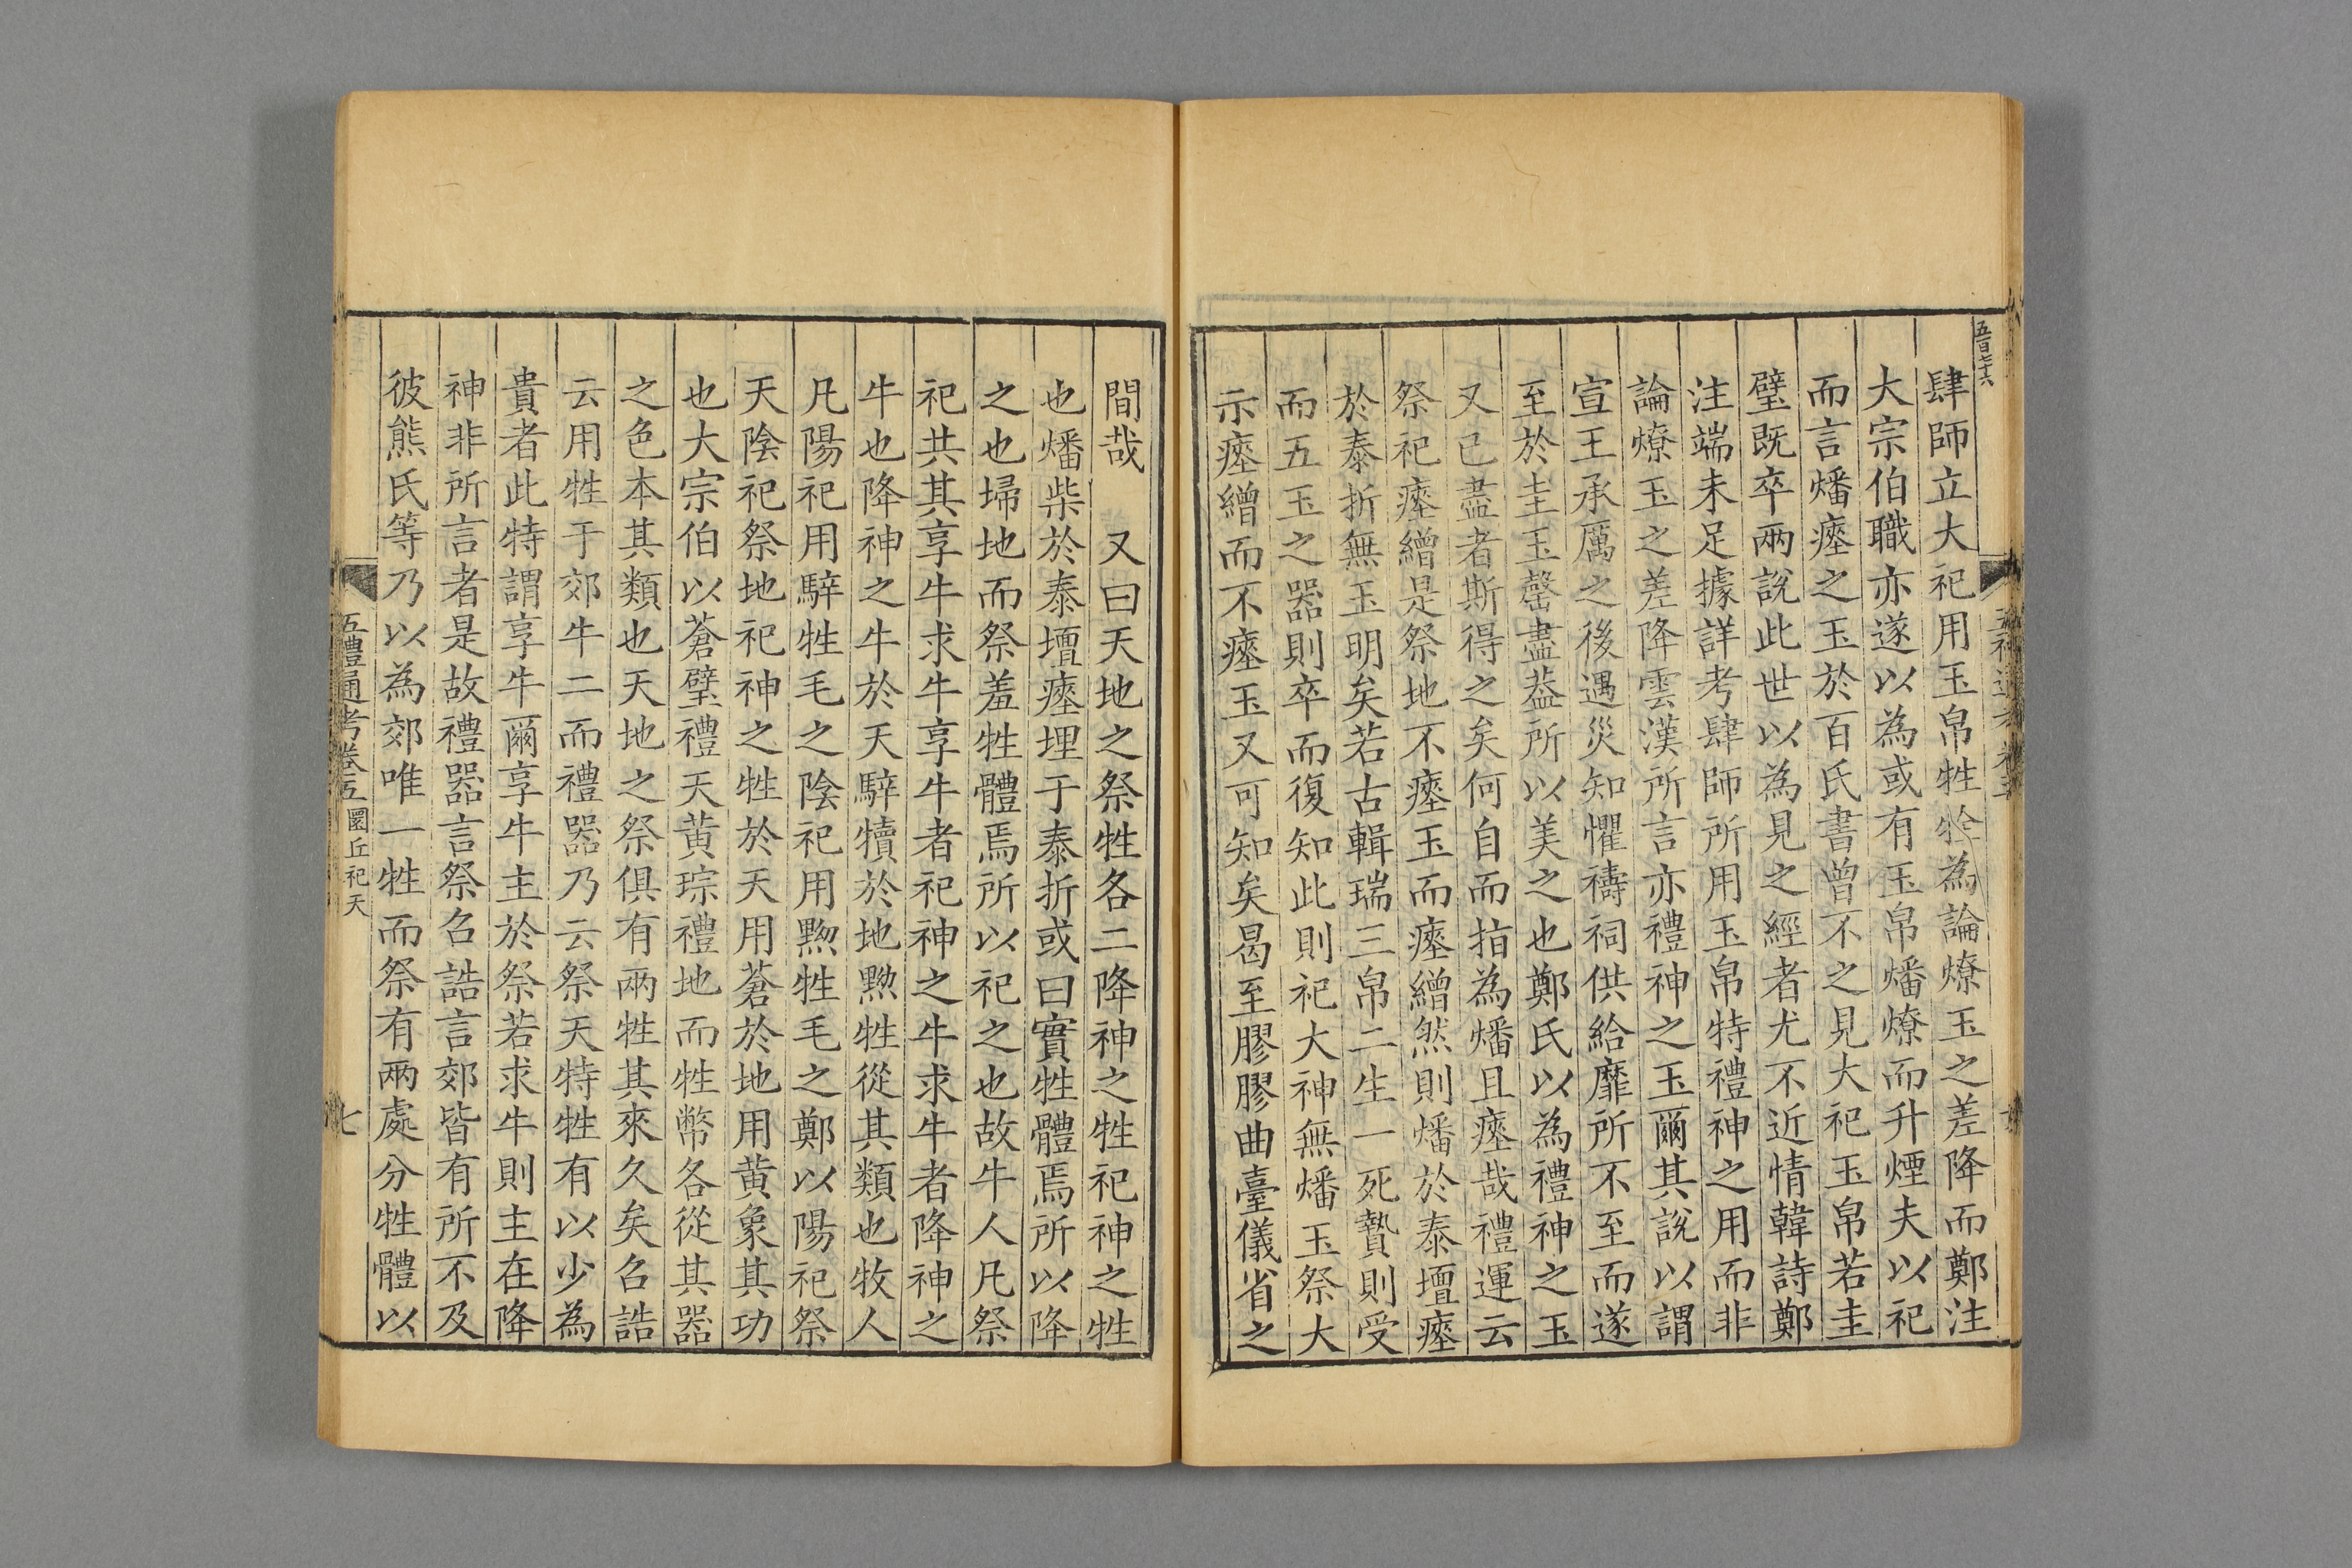 五百七十六
肆師立大祀用玉帛牲牷為論燎玉之差降而鄭注
大宗伯職亦遂以為或有玉帛燔燎而升煙夫以祀
而言燔瘞之玉於百氏書曾不之見大祀玉帛若圭
璧既卒兩說此世以為見之經者尤不近情韓詩鄭
注端未足據詳考肆師所用玉帛特禮神之用而非
論燎玉之差降雲漢所言亦禮神之玉爾其說以謂
宣王承厲之後遇災知懼禱祠供給靡所不至而遂
至於圭玉罄盡葢所以美之也鄭氏以為禮神之玉
又已盡者斯得之矣何自而指為燔且瘞哉禮運云
祭祀瘞繒是祭地不瘞玉而瘞繒然則燔於泰壇瘞
於泰折無玉明矣若古輯瑞三帛二生一死贄則受
而五玉之器則卒而復知此則祀大神無燔玉祭大
示瘞繒而不瘞玉又可知矣曷至膠膠曲臺儀省之
間哉　又曰天地之祭牲各二降神之牲祀神之牲
也燔柴於泰壇瘞埋于泰折或曰實牲體焉所以降
之也埽地而祭羞牲體焉所以祀之也故牛人凡祭
祀共其享牛求牛享牛者祀神之牛求牛者降神之
牛也降神之牛於天騂犢於地黝牲從其類也牧人
凡陽祀用騂牲毛之陰祀用黝牲毛之鄭以陽祀祭
天陰祀祭地祀神之牲於天用蒼於地用黃象其功
也大宗伯以蒼璧禮天黃琮禮地而牲幣各從其器
之色本其類也天地之祭俱有兩牲其來久矣召誥
云用牲于郊牛二而禮器乃云祭天特牲有以少為
貴者此特謂享牛爾享牛主於祭若求牛則主在降
神非所言者是故禮器言祭召誥言郊皆有所不及
彼熊氏等乃以為郊唯一牲而祭有兩處分牲體以
五禮通考卷五 圜丘祀天
七